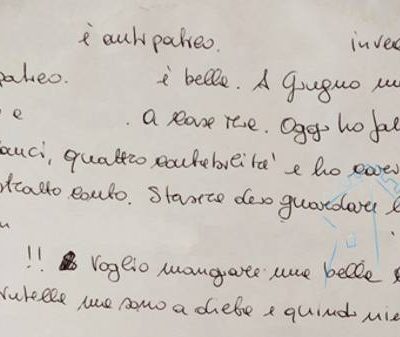 è antipatico. inve
patico. è bella. A Giugno
e . A casa mia. Oggi ho fa
anci, quattro contabilità e ho
stratto conto. Stasera devo guardare l
!! Voglio mangiare una bella
Nutella ma sono a dieta e quindi nie